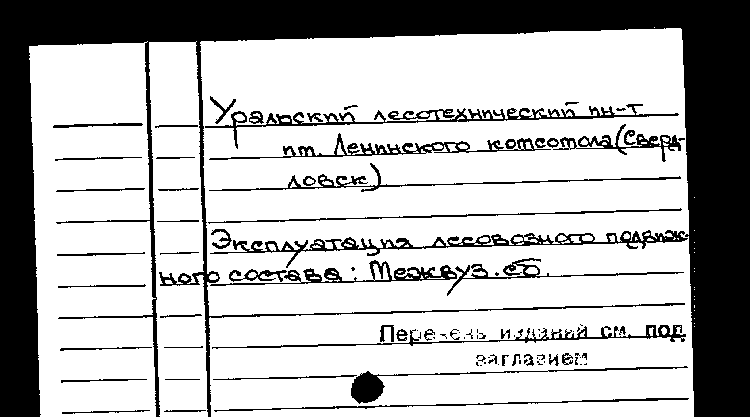 Уральский лесотехнический ин-т
им. Ленинского комсомола (Сверд-
ловск)
Эксплуатация лесовозного подвиж-
ного состава: Межвуз. сб.
Перечень изданий см. под
заглавием